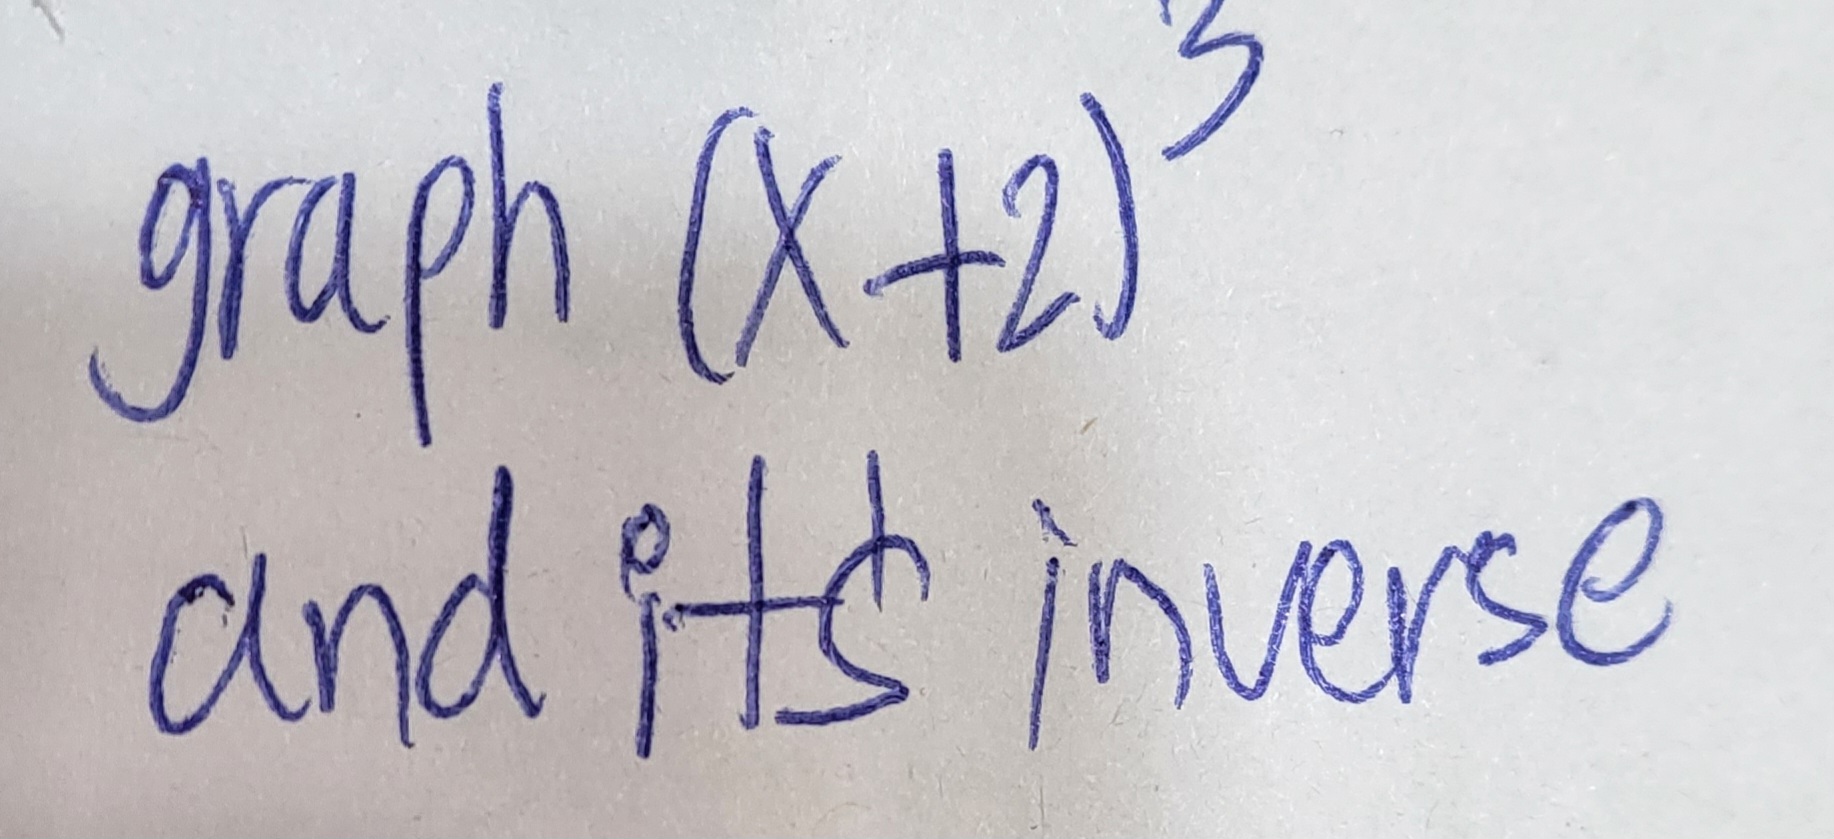 graph (x+2)³
and its inverse